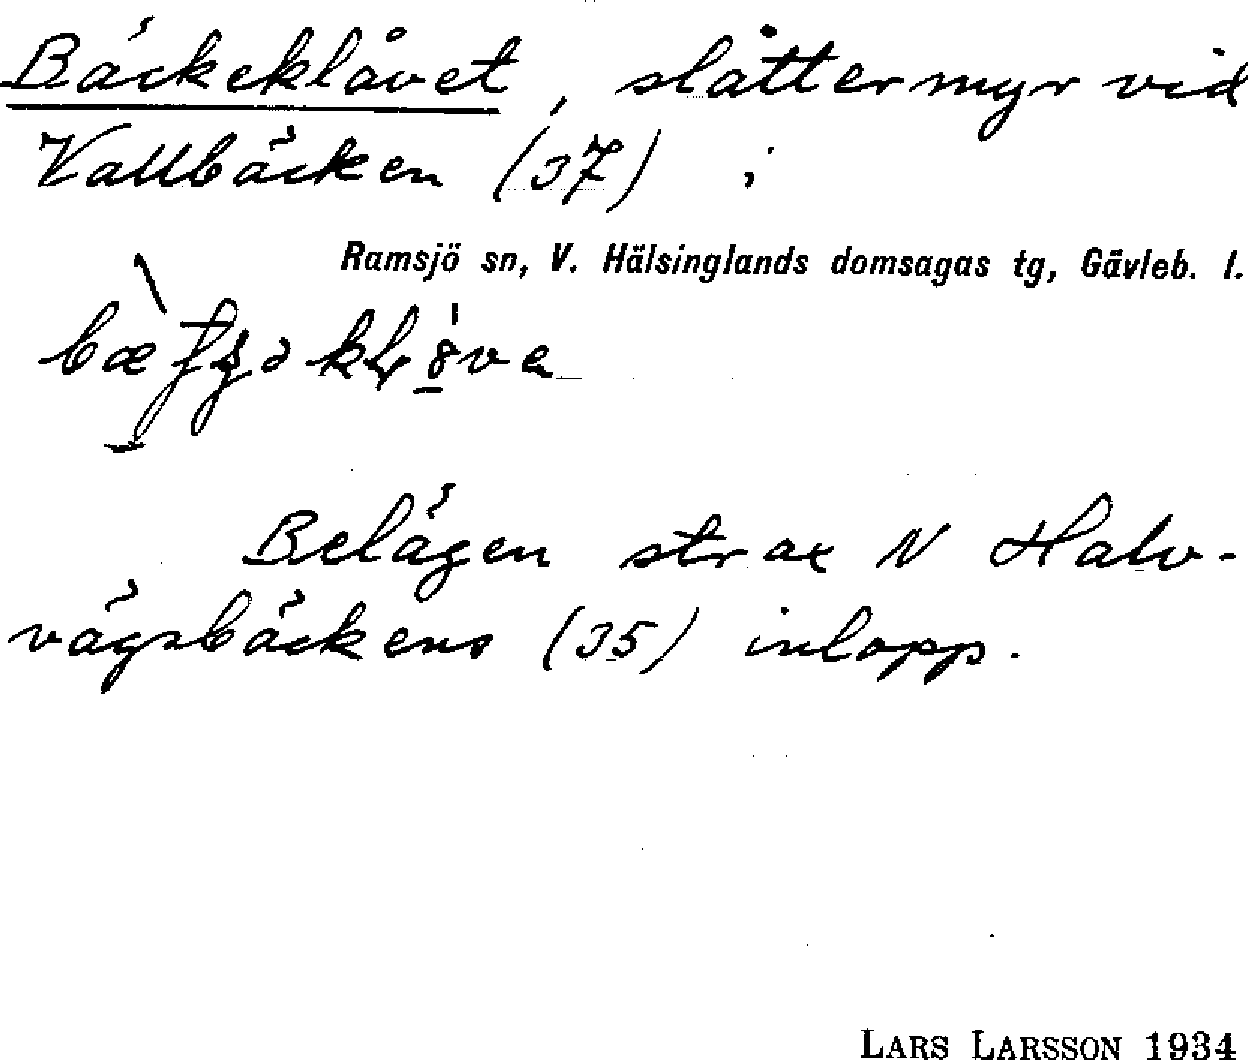 Bäckeklåvet, slåttermyr vid
Vallbäcken (37) i
Ramsjö sn, V. Hälsinglands domsagas tg, Gävleb. l.
Belägen strax N Halv-
vägsbäckens (35) inlopp.
LARS LARSSON 1934